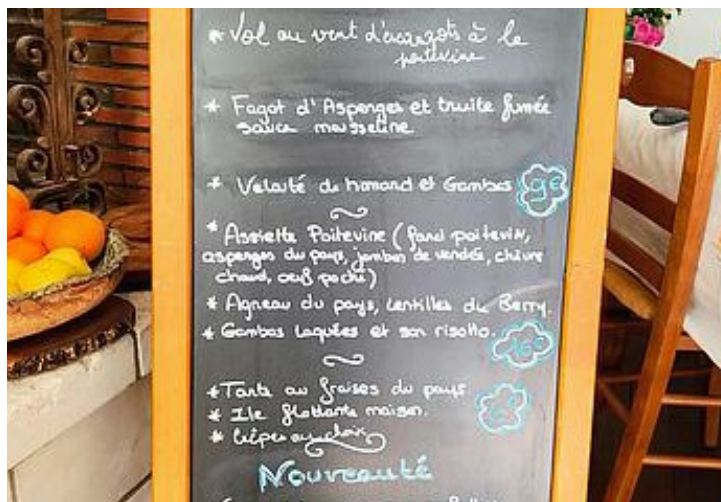 * Vol au vent d'escargots à la
poitevine
* Fagot d'Asperges et truite fumée
sauce mousseline
* Velouté de homard et Gambas 9€
* Assiette Poitevine (farci poitevin,
asperges du pays, jambon de vendée, chèvre
chaud, oeuf poché)
* Agneau du pays, lentilles du Berry.
* Gambas laquées et son risotto. 16€
* Tarte au fraises du pays
* Ile flottante maison.
* Crêpes au choix
Nouveauté